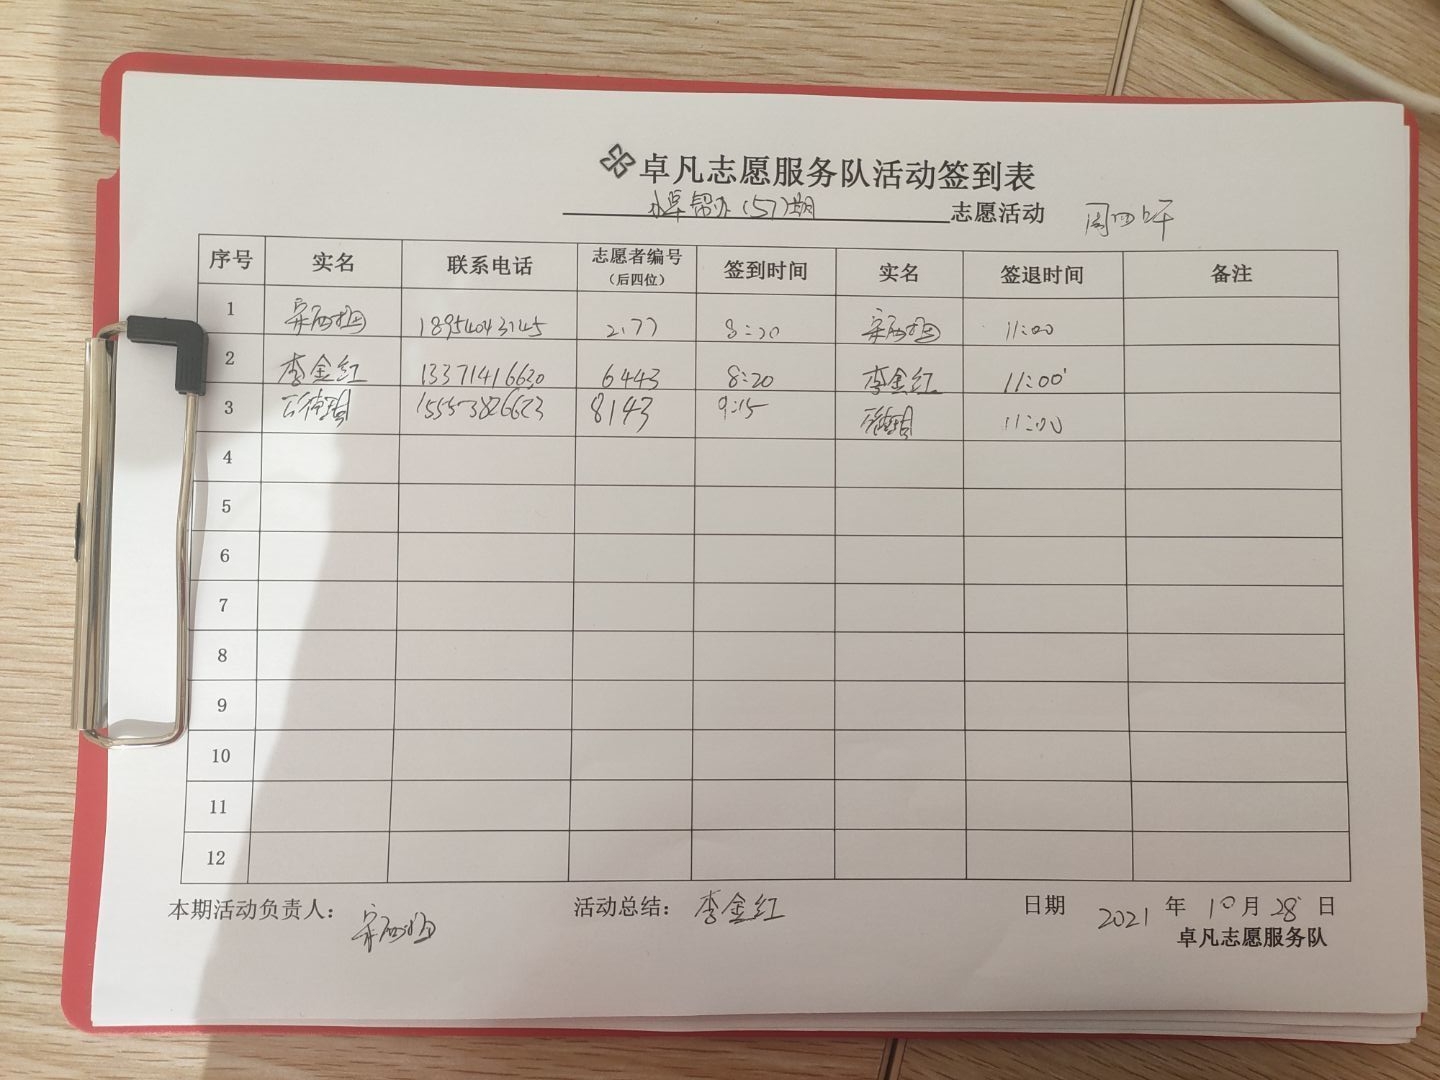 卓凡志愿服务队活动签到表
帮办(57)期 志愿活动 周四上午
序号 实名 联系电话 志愿者编号(后四位) 签到时间 实名 签退时间 备注
1 18954043145 2177 8:20 11:00
2 李金红 13371416630 6443 8:20 李金红 11:00
3 15553826623 8143 9:15 11:00
4
5
6
7
8
9
10
11
12
本期活动负责人: 活动总结: 李金红 日期 2021 年 10 月 28 日
卓凡志愿服务队